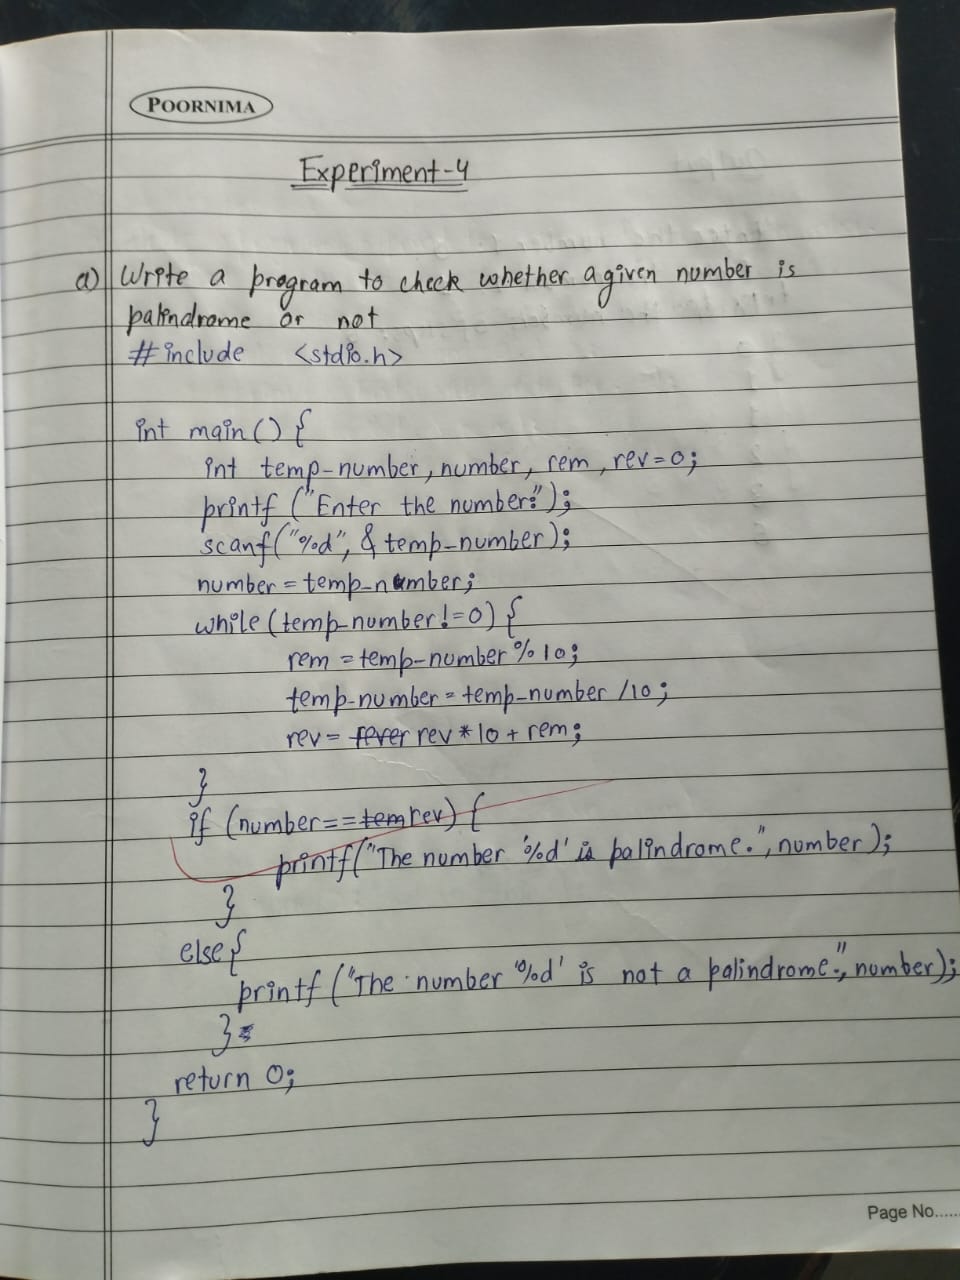 POORNIMA
Experiment-4
a) Write a program to check whether a given number is
palindrome or not
#include <stdio.h>
int main() {
int temp-number, number, rem, rev=0;
printf ("Enter the number:");
scanf("%d", & temp-number);
number = temp-number;
while (temp-number!=0) {
rem = temp-number % 10;
temp-number = temp-number /10;
rev = rev * 10 + rem;
}
if (number== rev) {
printf("The number '%d' is palindrome.", number);
}
else {
printf ("The number '%d' is not a palindrome.", number);
}
return 0;
}
Page No......